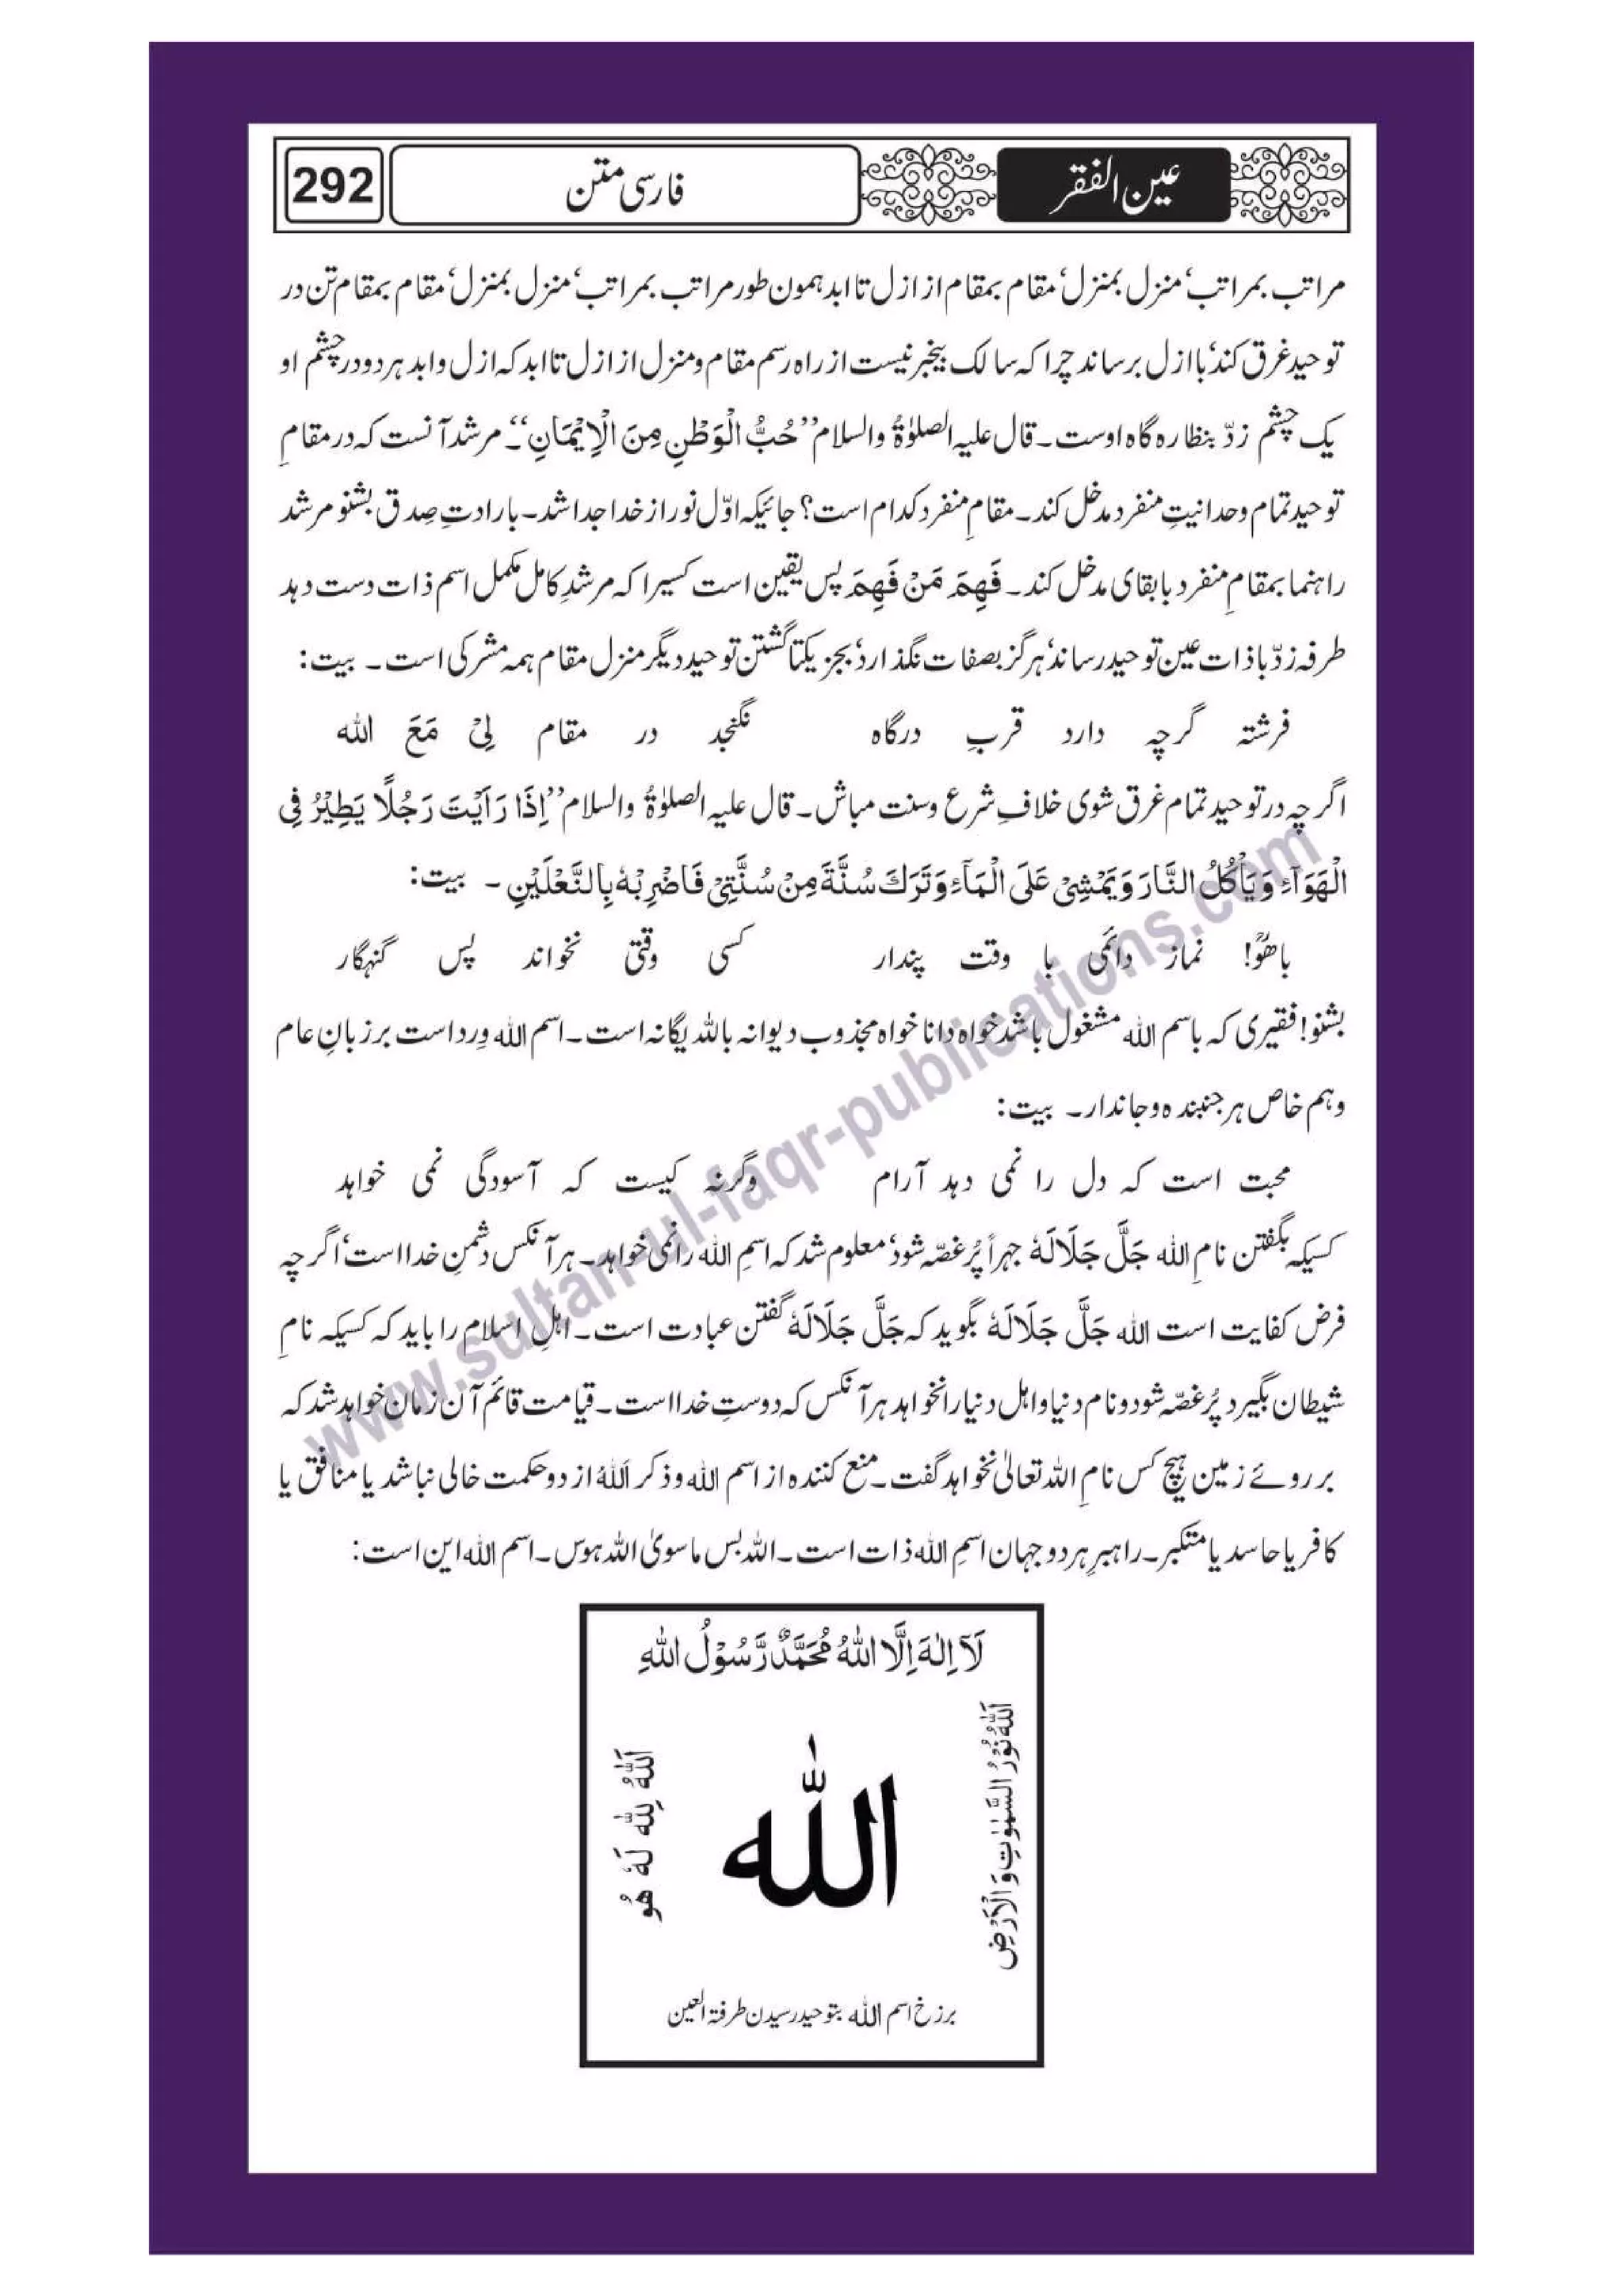 عین الفقر
فارسی متن
292
مراتب بمراتب، منزل بمنزل، مقام بمقام از ازل تا ابد ہمون طور مراتب بمراتب، منزل بمنزل، مقام بمقام تن در
توحید غرق کند، با ازل برساند چرا کہ سالک بیخبر نیست از راہ رسم مقام و منزل از ازل تا ابد کہ ازل و ابد ہر دو در چشم او
یک چشم زدّ بنظارہ گاہ اوست۔ قال علیہ الصلوٰۃ والسلام ’’حُبُّ الْوَطْنِ مِنَ الْاِیْمَانِ‘‘۔ مرشد آنست کہ در مقامِ
توحید تمام وحدانیتِ منفرد مدخل کند۔ مقامِ منفرد کدام است؟ جائیکہ اوّل نور از خدا جدا شد۔ بارادتِ صِدق بشنو مرشد
راہنما بمقامِ منفرد بابقای مدخل کند۔ فَہِمَ مَنْ فَہِمَ پس یقین است کسیرا کہ مرشدِ کامل مکمل اسم ذات دست دہد
طرفہ زدّ باذات عین توحید رساند، ہرگز بصفات نگذارد، بجز یکتا گشتن توحید دیگر منزل مقام ہمہ مشرکی است۔ بیت:
فرشتہ گرچہ دارد قربِ درگاہ نگنجد در مقام لِیْ مَعَ اللہ
اگرچہ در توحید تمام غرق شوی خلافِ شرع و سنت مباش۔ قال علیہ الصلوٰۃ والسلام ’’اِذَا رَاَیْتَ رَجُلًا یَطِیْرُ فِی
الْہَوَآءِ وَیَاْکُلُ النَّارَ وَیَمْشِیْ عَلَی الْمَآءِ وَتَرَکَ سُنَّۃَ مِنْ سُنَّتِیْ فَاضْرِبْہُ بِالنَّعْلَیْنِ۔ بیت:
باھُوؒ! نماز دائمی با وقت پندار کسی وقتی نخواند پس گنہگار
بشنو! فقیری کہ باسم اللہ مشغول باشد خواہ دانا خواہ مجذوب دیوانہ باللہ یگانہ است۔ اسم اللہ وِرد است بر زبانِ عام
و ہم خاص ہر جنبندہ و جاندار۔ بیت:
محبت است کہ دل را نمی دہد آرام وگرنہ کیست کہ آسودگی نمی خواہد
کسیکہ بگفتن نامِ اللہ جَلَّ جَلَالَہٗ جہراً پُر غصّہ شود، معلوم شد کہ اسمِ اللہ را نمی خواہد۔ ہر آنکس دشمنِ خدا است، اگرچہ
فرض کفایت است اللہ جَلَّ جَلَالَہٗ بگوید کہ جَلَّ جَلَالَہٗ گفتن عبادت است۔ اہلِ اسلام را باید کہ کسیکہ نامِ
شیطان بگیرد پُر غصّہ شود و نام دنیا و اہل دنیا را نخواہد ہر آنکس کہ دوستِ خدا است۔ قیامت قائم آن زمان خواہد شد کہ
بر روئے زمین ہیچ کس نامِ اللہ تعالیٰ نخواہد گفت۔ منع کنندہ از اسم اللہ و ذکر اَللہُ از دو حکمت خالی نباشد یا منافق یا
کافر یا حاسد یا متکبر۔ راہبرِ ہر دو جہان اسمِ اللہ ذات است۔ اللہ بس ماسویٰ اللہ ہوس۔ اسم اللہ این است:
لَآ اِلٰہَ اِلَّا اللہُ مُحَمَّدٌ رَّسُوْلُ اللہِ
اَللہُ نُوْرُ السَّمٰوٰتِ وَ الْاَرْضِ
اَللّٰہ
اَللہُ لِلہ لَہٗ ھُو
برزخ اسم اللہ بتوحید رسیدن طرفۃ العین
www.sultan-ul-faqr-publications.com